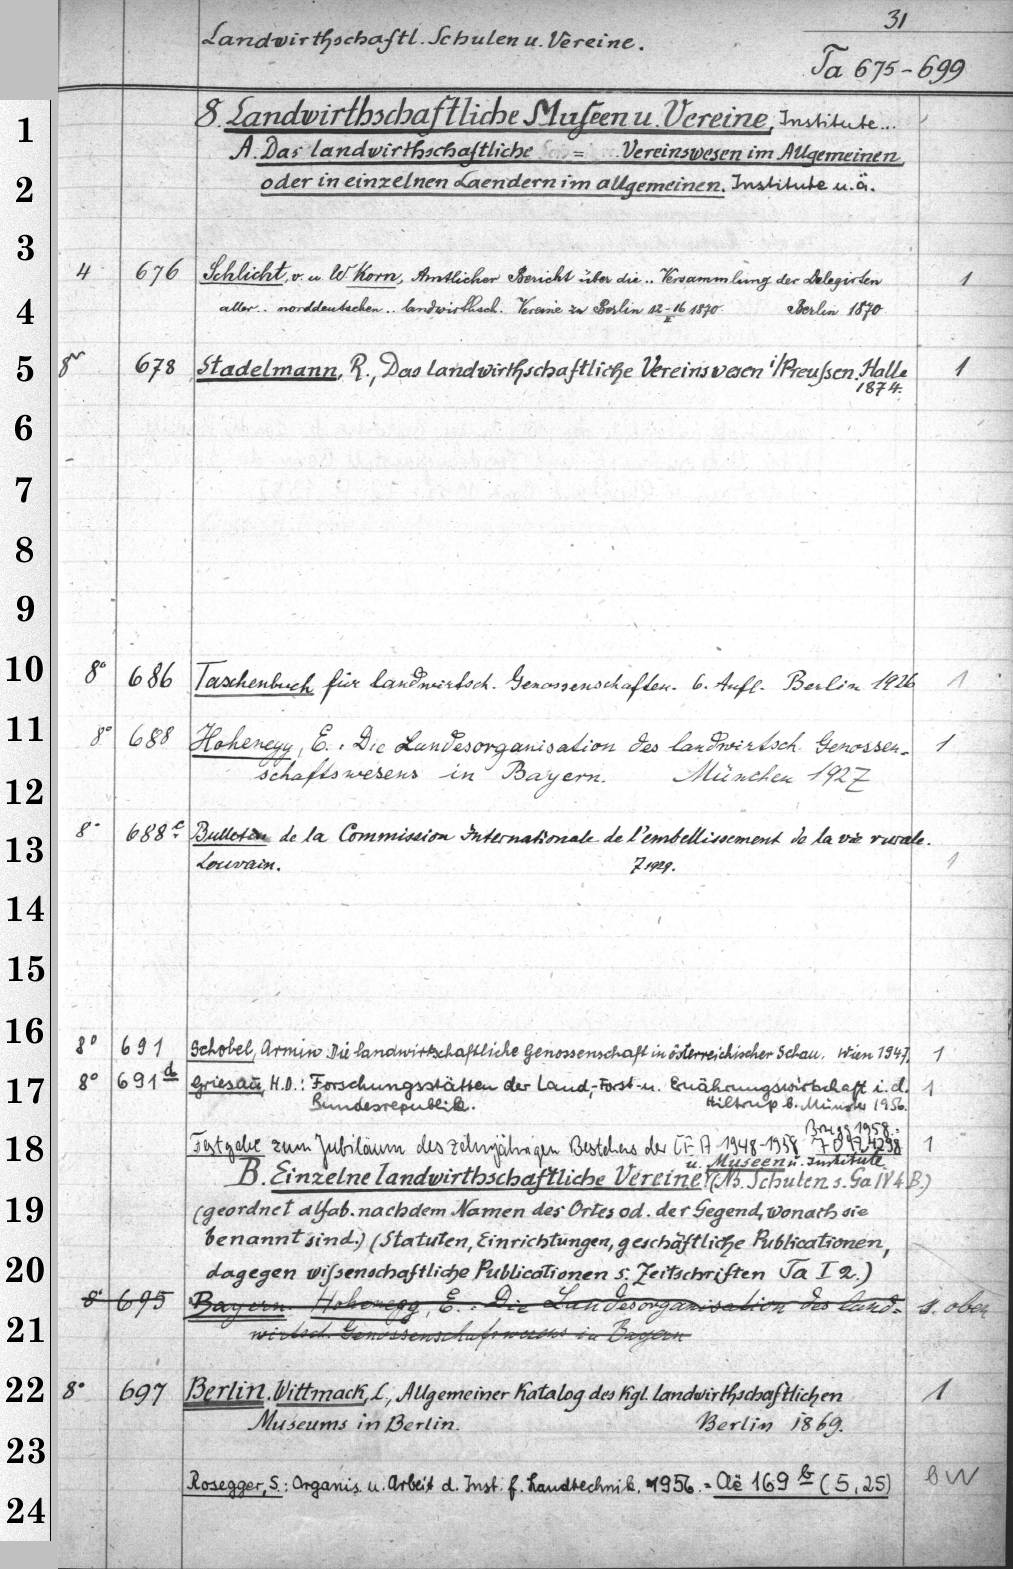 31
Landwirthschaftl. Schulen u. Vereine.
Ta 675-699
8. Landwirthschaftliche Museen u. Vereine, Institute...
1
A. Das landwirthschaftliche = Vereinswesen im Allgemeinen
oder in einzelnen Laendern im allgemeinen. Institute u.ä.
2
3
4 676 Schlicht, v. u W Korn, Amtlicher Bericht über die .. Versammlung der Delegirten 1
aller .. norddeutschen .. landwirthsch. Vereine zu Berlin 12-16 1870 Berlin 1870
4
5 8° 678 Stadelmann, R., Das landwirthschaftliche Vereinswesen i/Preußen. Halle 1
1874.
6
7
8
9
10 8° 686 Taschenbuch für landwirtsch. Genossenschaften. 6. Aufl. Berlin 1926 1
11 8° 688 Hohenegg, E.: Die Landesorganisation des landwirtsch. Genossen- 1
schaftswesens in Bayern. München 1927
12
8° 688 c Bulletin de la Commission Internationale de l'embellissement de la vie rurale.
13
Louvain. 7 1929. 1
14
15
16
8° 691 Schobel, Armin: Die landwirtschaftliche Genossenschaft in österreichischer Schau. Wien 1947. 1
17 8° 691 d Griesau, H.D.: Forschungsstätten der Land-, Forst- u. Ernährungswirtschaft i. d. 1
Bundesrepublik. Hiltrup b. Münster 1956.
Brugg 1958.=
18 Festgabe zum Jubiläum des zehnjährigen Bestehens der CEA 1948-1958 1
u. Museen u. Institute.
B. Einzelne landwirthschaftliche Vereine (Nb. Schulen s. Ga IV 4. B.)
19 (geordnet alfab. nach dem Namen des Ortes od. der Gegend, wonach sie
benannt sind.) (Statuten, Einrichtungen, geschäftliche Publicationen,
20 dagegen wissenschaftliche Publicationen s. Zeitschriften Ta I 2.)
8° 695 Bayern. Hohenegg, E.: Die Landesorganisation des land- s. oben
21 wirtsch. Genossenschaftswesens in Bayern
22 8° 697 Berlin. Wittmack, L., Allgemeiner Katalog des Kgl. landwirthschaftlichen 1
Museums in Berlin. Berlin 1869.
23
Rosegger, S.: Organis. u. Arbeit d. Inst. f. Landtechnik. 1956. = Aë 169 b (5,25) BW
24